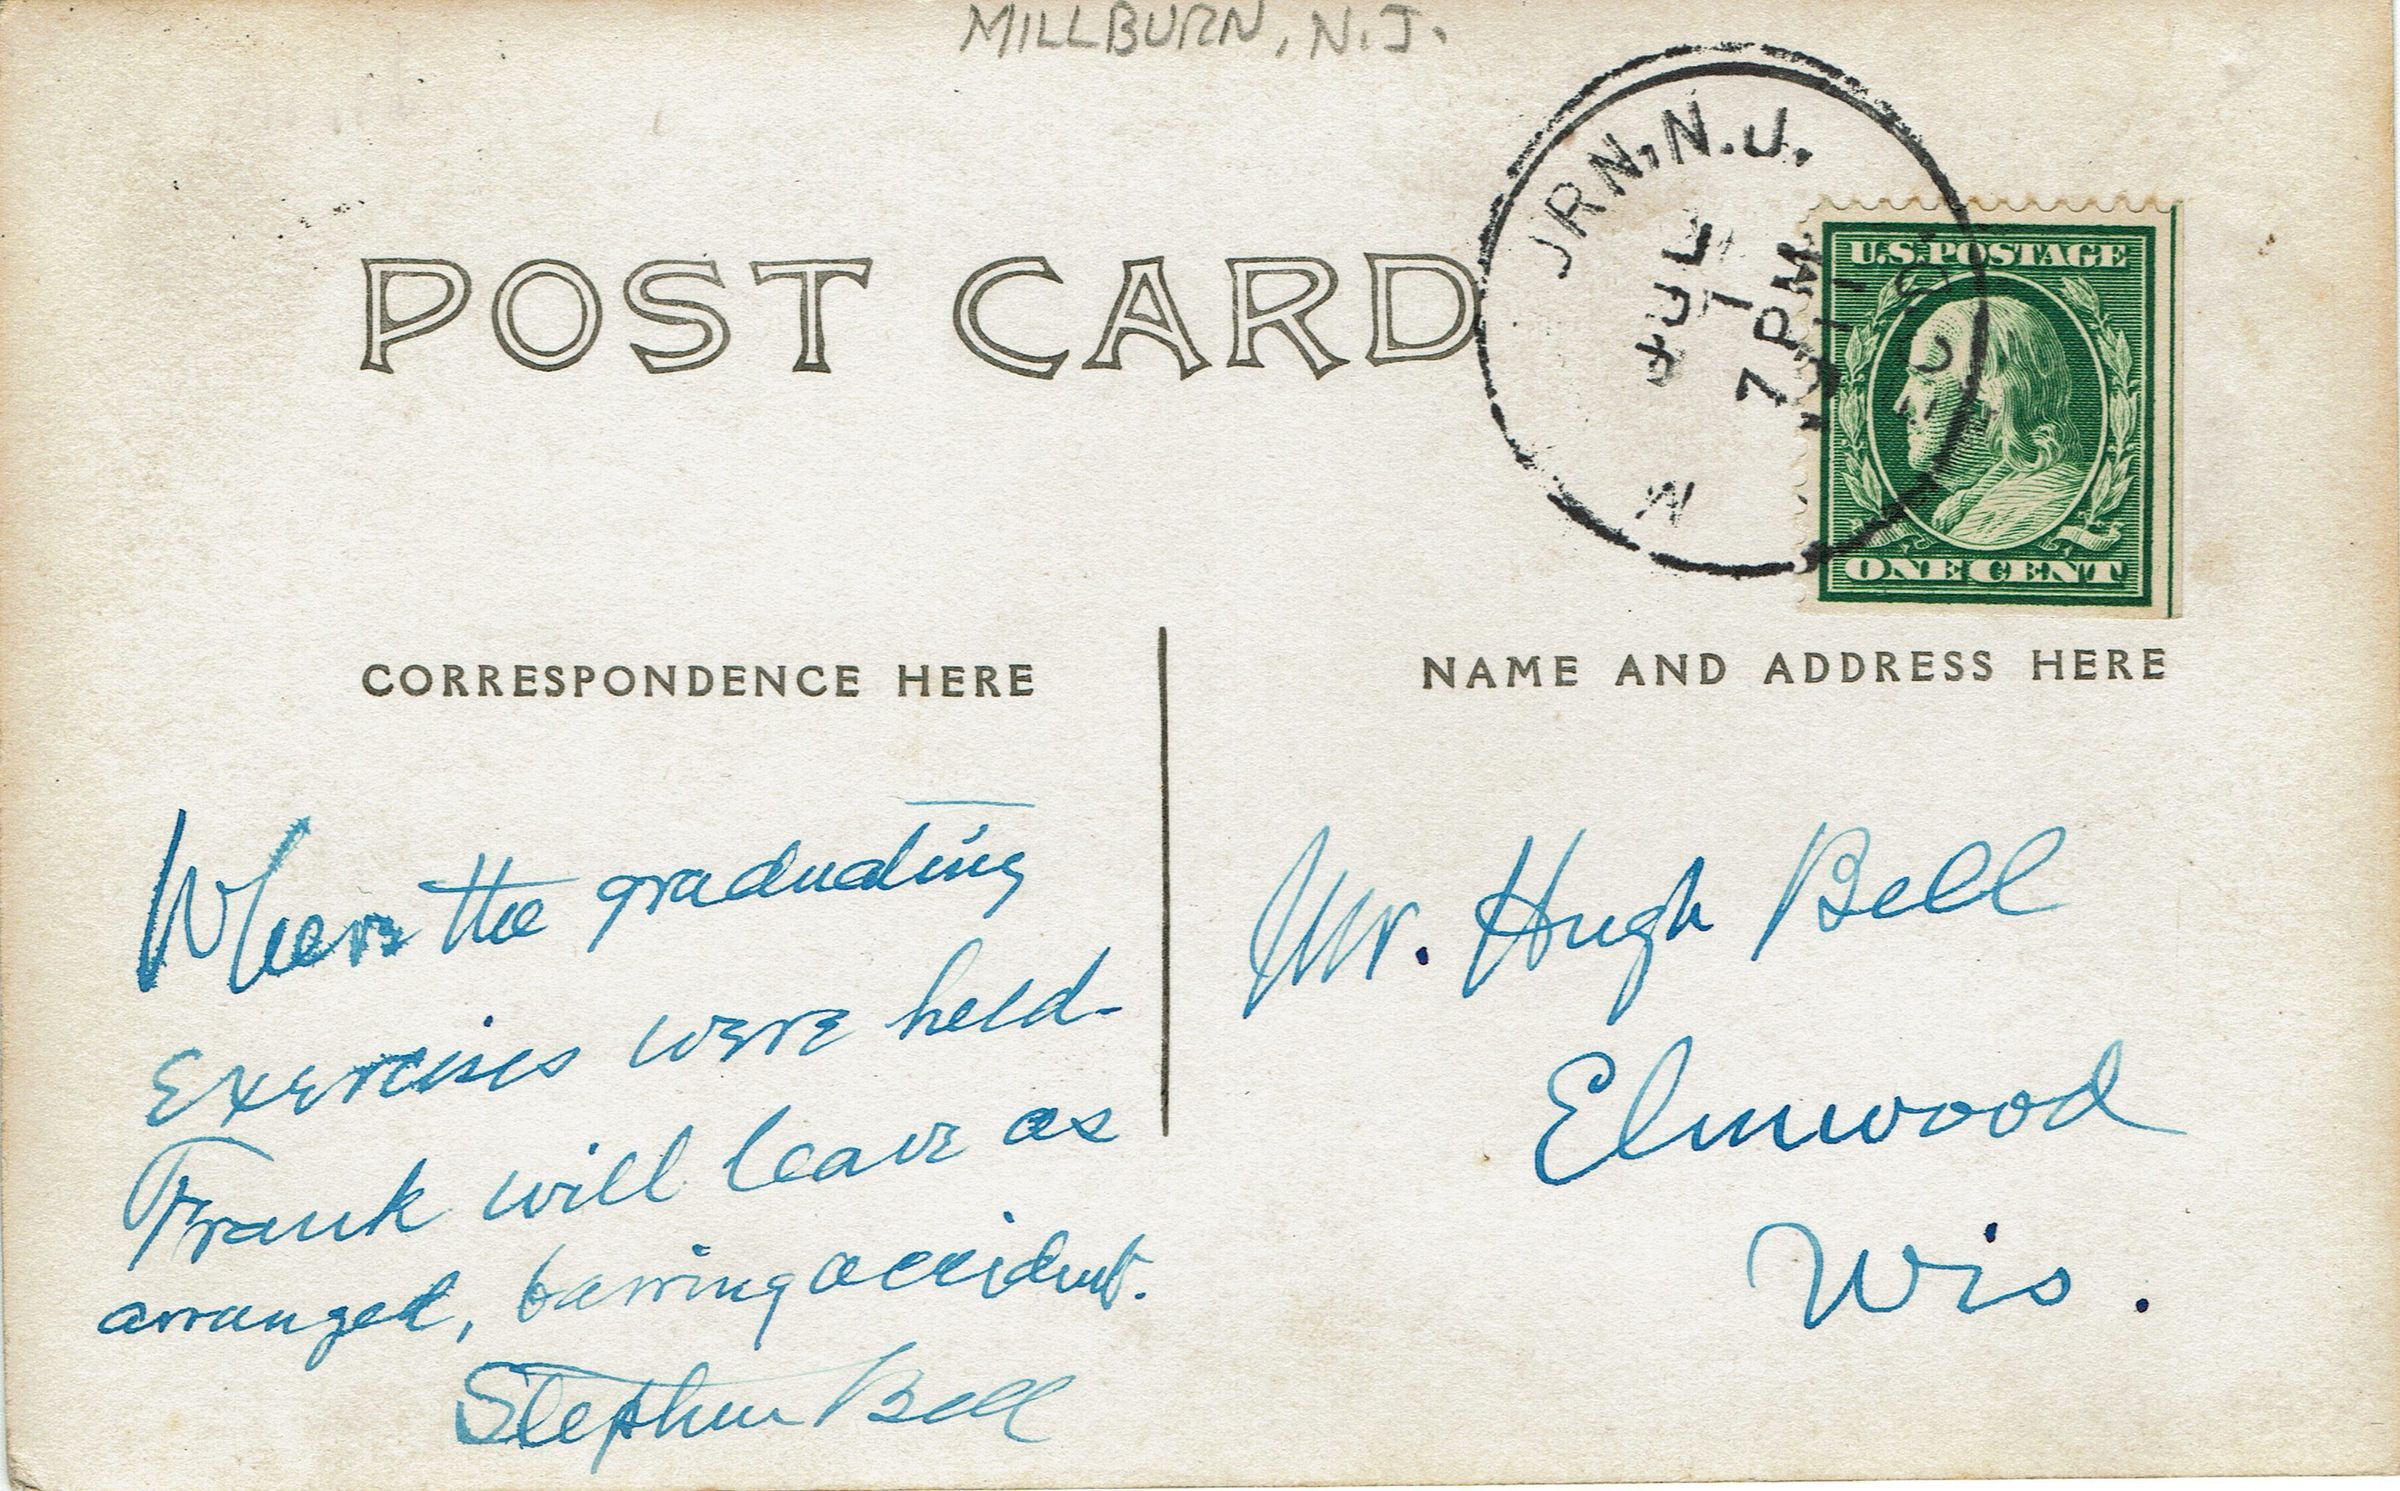 MILLBURN, N.J.
POST CARD
URN, N.J.
JUL
1
7 PM
1911
M
U.S. POSTAGE
ONE CENT
CORRESPONDENCE HERE
NAME AND ADDRESS HERE
Where the graduating
Exercises were held-
Frank will leave as
arranged, barring accident.
Stephen Bell
Mr. Hugh Bell
Elmwood
Wis.